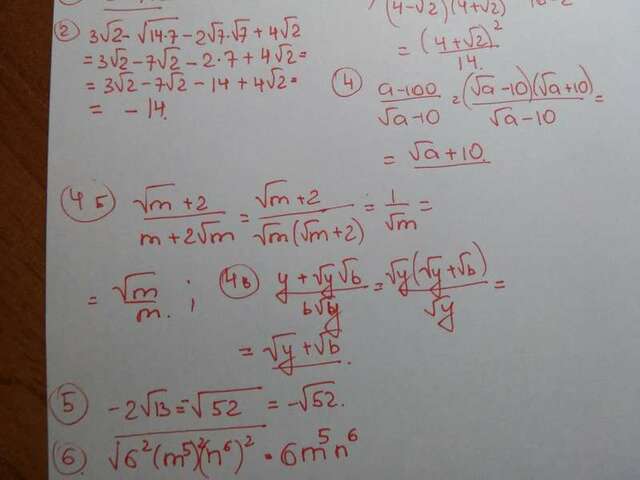 (4-√2)(4+√2)
= (4+√2)² / 14.
② 3√2 - √(14·7) - 2√7·√7 + 4√2
= 3√2 - 7√2 - 2·7 + 4√2 =
= 3√2 - 7√2 - 14 + 4√2 =
= -14.
④ (a-100)/(√a-10) = (√a-10)(√a+10)/(√a-10) =
= √a+10.
④ б (√m+2)/(m+2√m) = (√m+2)/(√m(√m+2)) = 1/√m =
= √m/m. ;
④в (y+√y√b)/ = √y(√y+√b)/√y =
= √y+√b.
⑤ -2√13 = -√52 = -√52.
⑥ √(6²(m⁵)²(n⁶)²) · 6m⁵n⁶